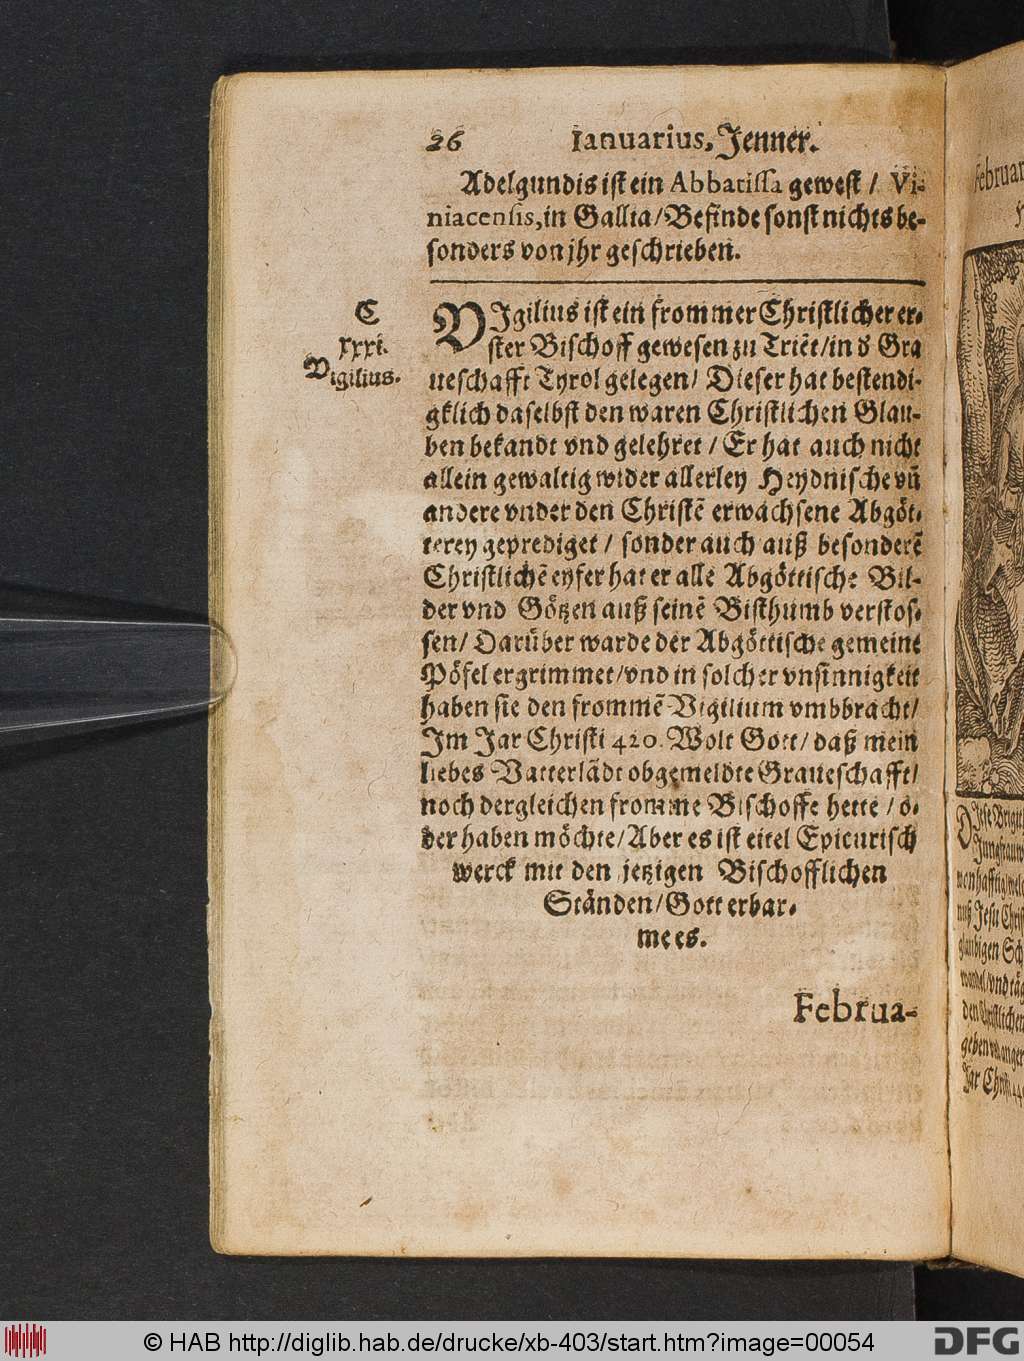 26 Ianuarius, Jenner.
Adelgundis ist ein Abbatissa gewest / Vi-
niacensis, in Gallia / Befinde sonst nichts be-
sonders von jhr geschrieben.
C
xxxi.
Vigilius.
VIgilius ist ein frommer Christlicher er-
ster Bischoff gewesen zu Triēt / in d Gra
ueschafft Tyrol gelegen / Dieser hat bestendi-
gklich daselbst den waren Christlichen Glau-
ben bekandt vnd gelehret / Er hat auch nicht
allein gewaltig wider allerley Heydnische vñ
andere vnder den Christē erwachsene Abgöt-
terey geprediget / sonder auch auß besonderē
Christlichē eyfer hat er alle Abgöttische Bil-
der vnd Götzen auß seinē Bisthumb verstos-
sen / Darüber warde der Abgöttische gemeine
Pöfel ergrimmet / vnd in solcher vnsinnigkeit
haben sie den frommē Vigilium vmbbracht /
Im Jar Christi 420. Wolt Gott / daß mein
liebes Vatterlādt obgemeldte Graueschafft /
noch dergleichen fromme Bischoffe hette / o-
der haben möchte / Aber es ist eitel Epicurisch
werck mit den jetzigen Bischofflichen
Ständen / Gott erbar-
me es.
Februa-
Februar
Diese Brigit
Jungfrauw
wonhafftig
nuß Jesu Christ
glaubigen Sch
wandel / vnd
den Christlichen
geben
Jar Christi 44
© HAB http://diglib.hab.de/drucke/xb-403/start.htm?image=00054
DFG